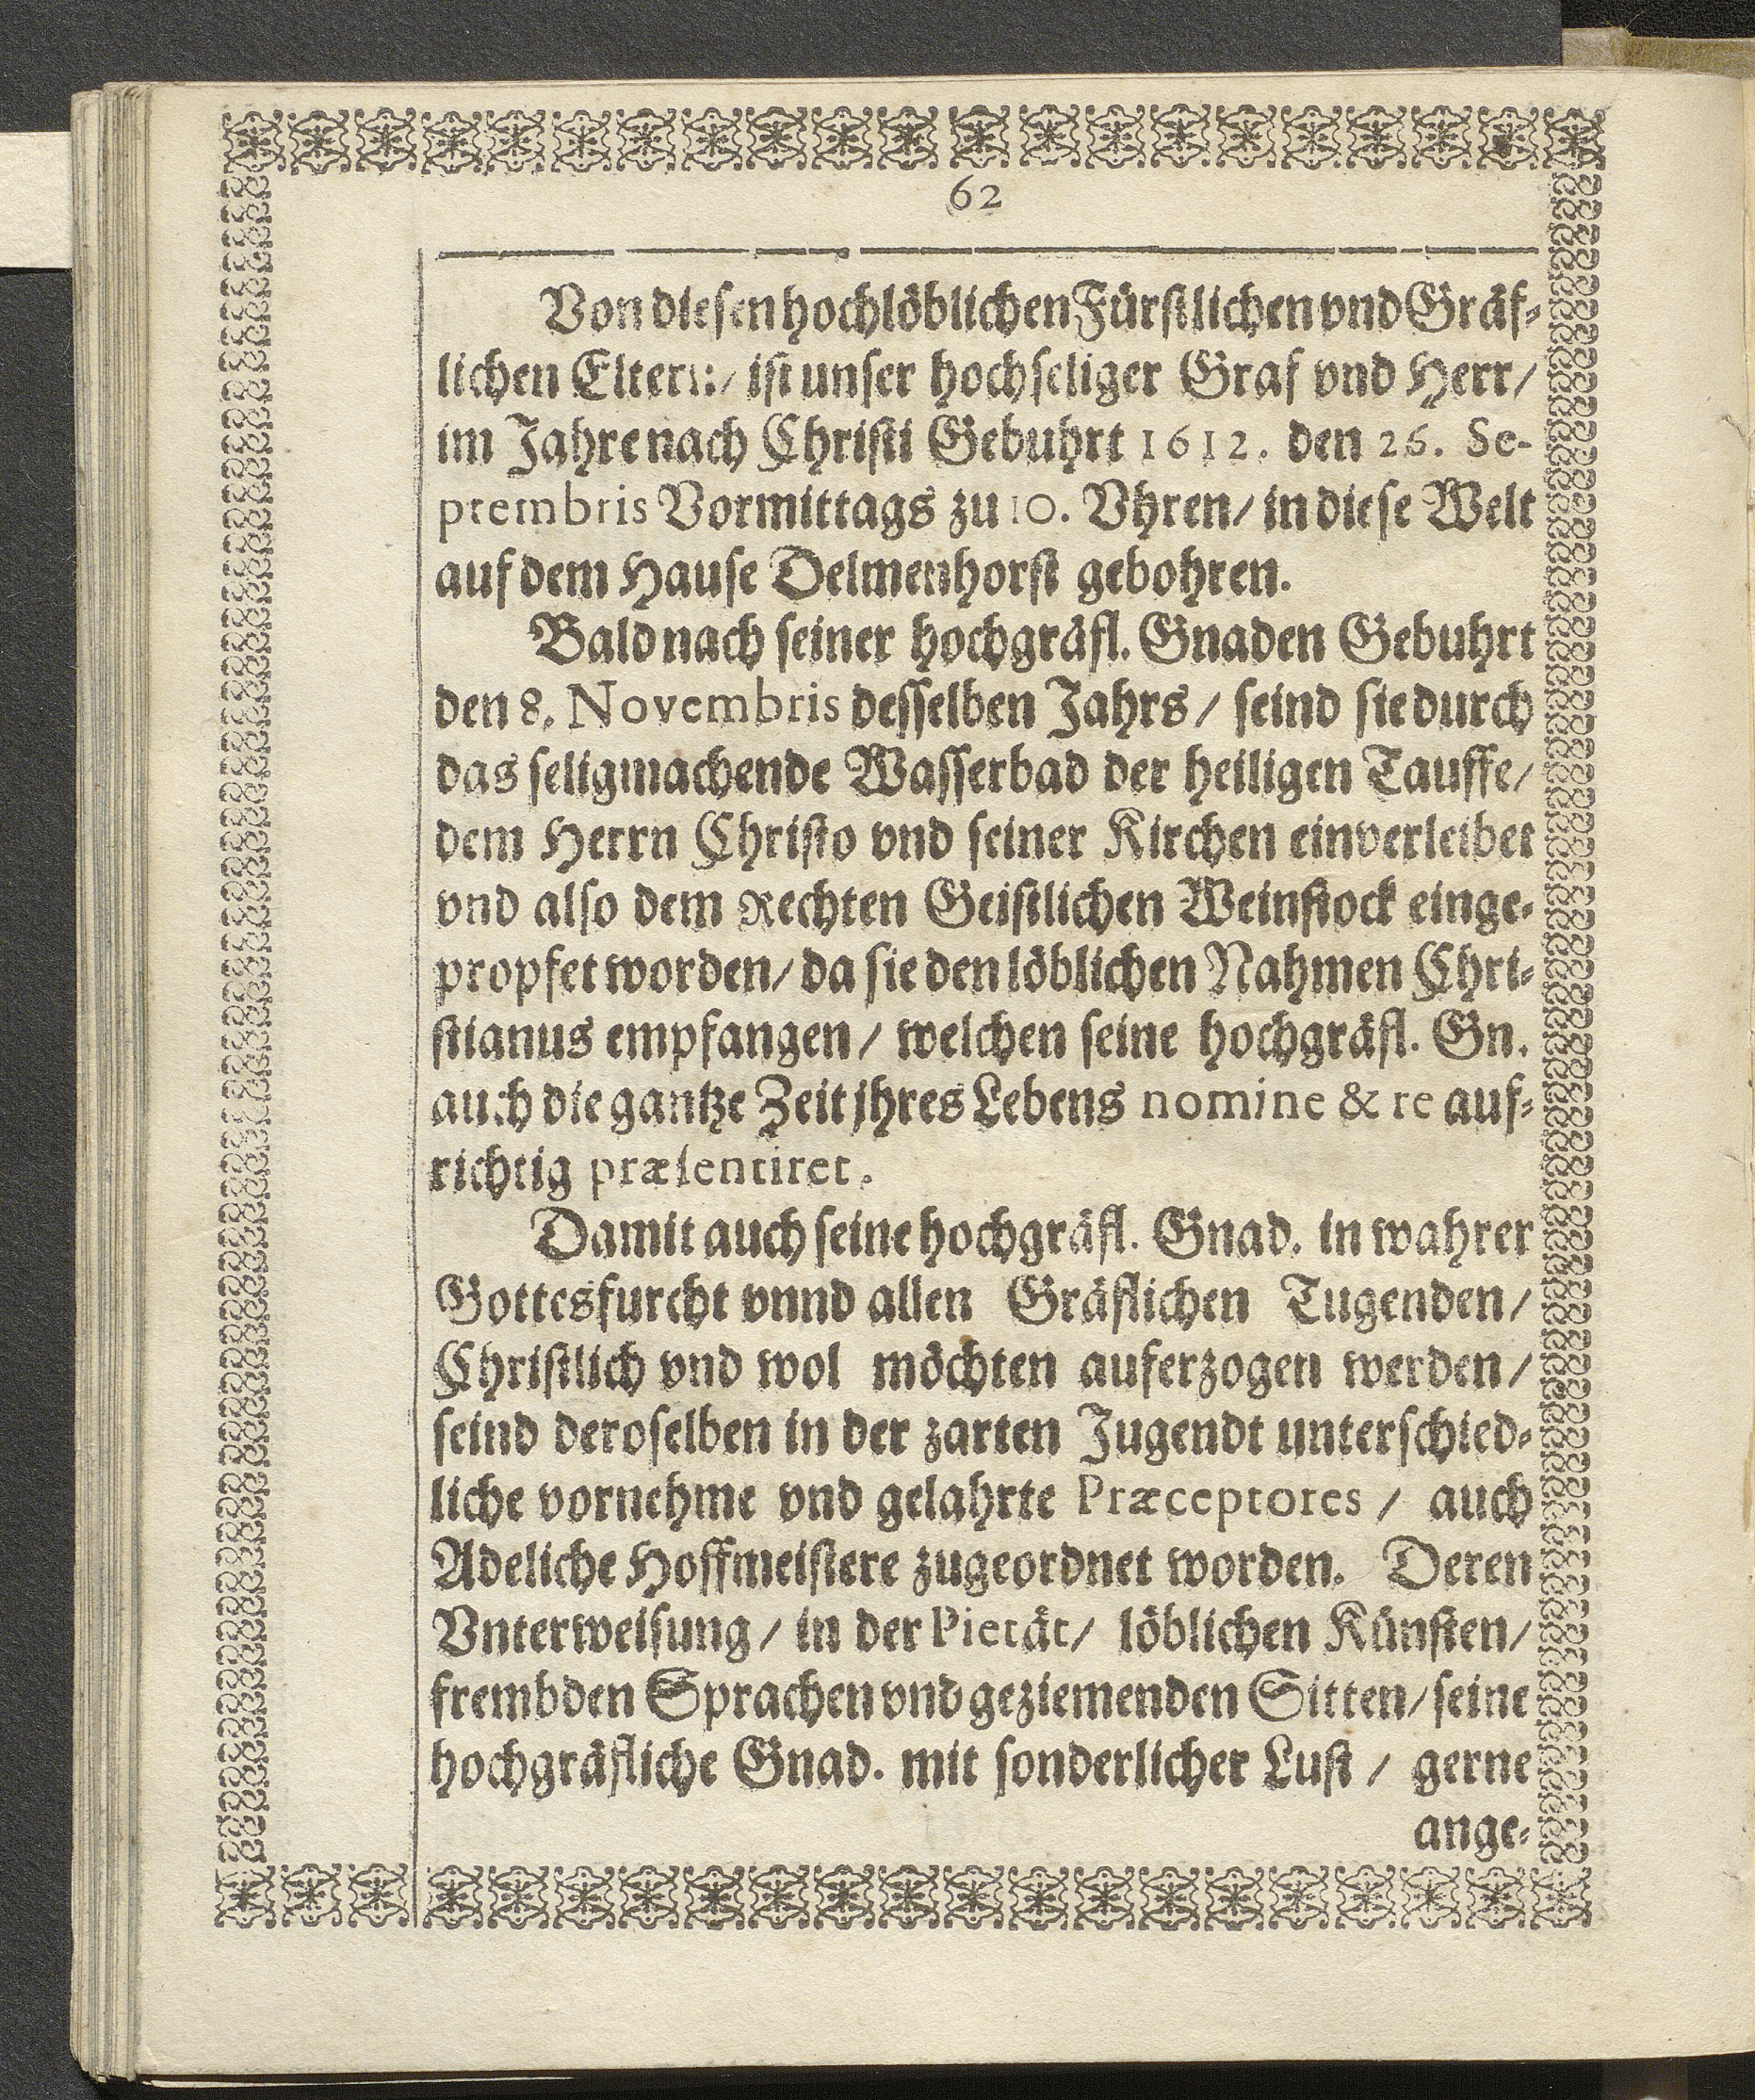 62
Von diesen hochlöblichen Fürstlichen vnd Gräf-
lichen Eltern/ ist unser hochseliger Graf vnd Herr/
im Jahre nach Christi Gebuhrt 1612. den 26. Se-
ptembris Vormittags zu 10. Vhren/ in diese Welt
auf dem Hause Delmenhorst gebohren.
Bald nach seiner hochgräfl. Gnaden Gebuhrt
den 8. Novembris desselben Jahrs / seind sie durch
das seligmachende Wasserbad der heiligen Tauffe/
dem Herrn Christo vnd seiner Kirchen einverleibet
vnd also dem Rechten Geistlichen Weinstock einge-
propfet worden/ da sie den löblichen Nahmen Chri-
stianus empfangen / welchen seine hochgräfl. Gn.
auch die gantze Zeit jhres Lebens nomine & re auf-
richtig præsentiret.
Damit auch seine hochgräfl. Gnad. in wahrer
Gottesfurcht vnnd allen Gräflichen Tugenden/
Christlich vnd wol möchten auferzogen werden/
seind deroselben in der zarten Jugendt unterschied-
liche vornehme vnd gelahrte Præceptores / auch
Adeliche Hoffmeistere zugeordnet worden. Deren
Vnterweisung / in der Pietät/ löblichen Künsten/
frembden Sprachen vnd geziemenden Sitten/ seine
hochgräfliche Gnad. mit sonderlicher Lust / gerne
ange-